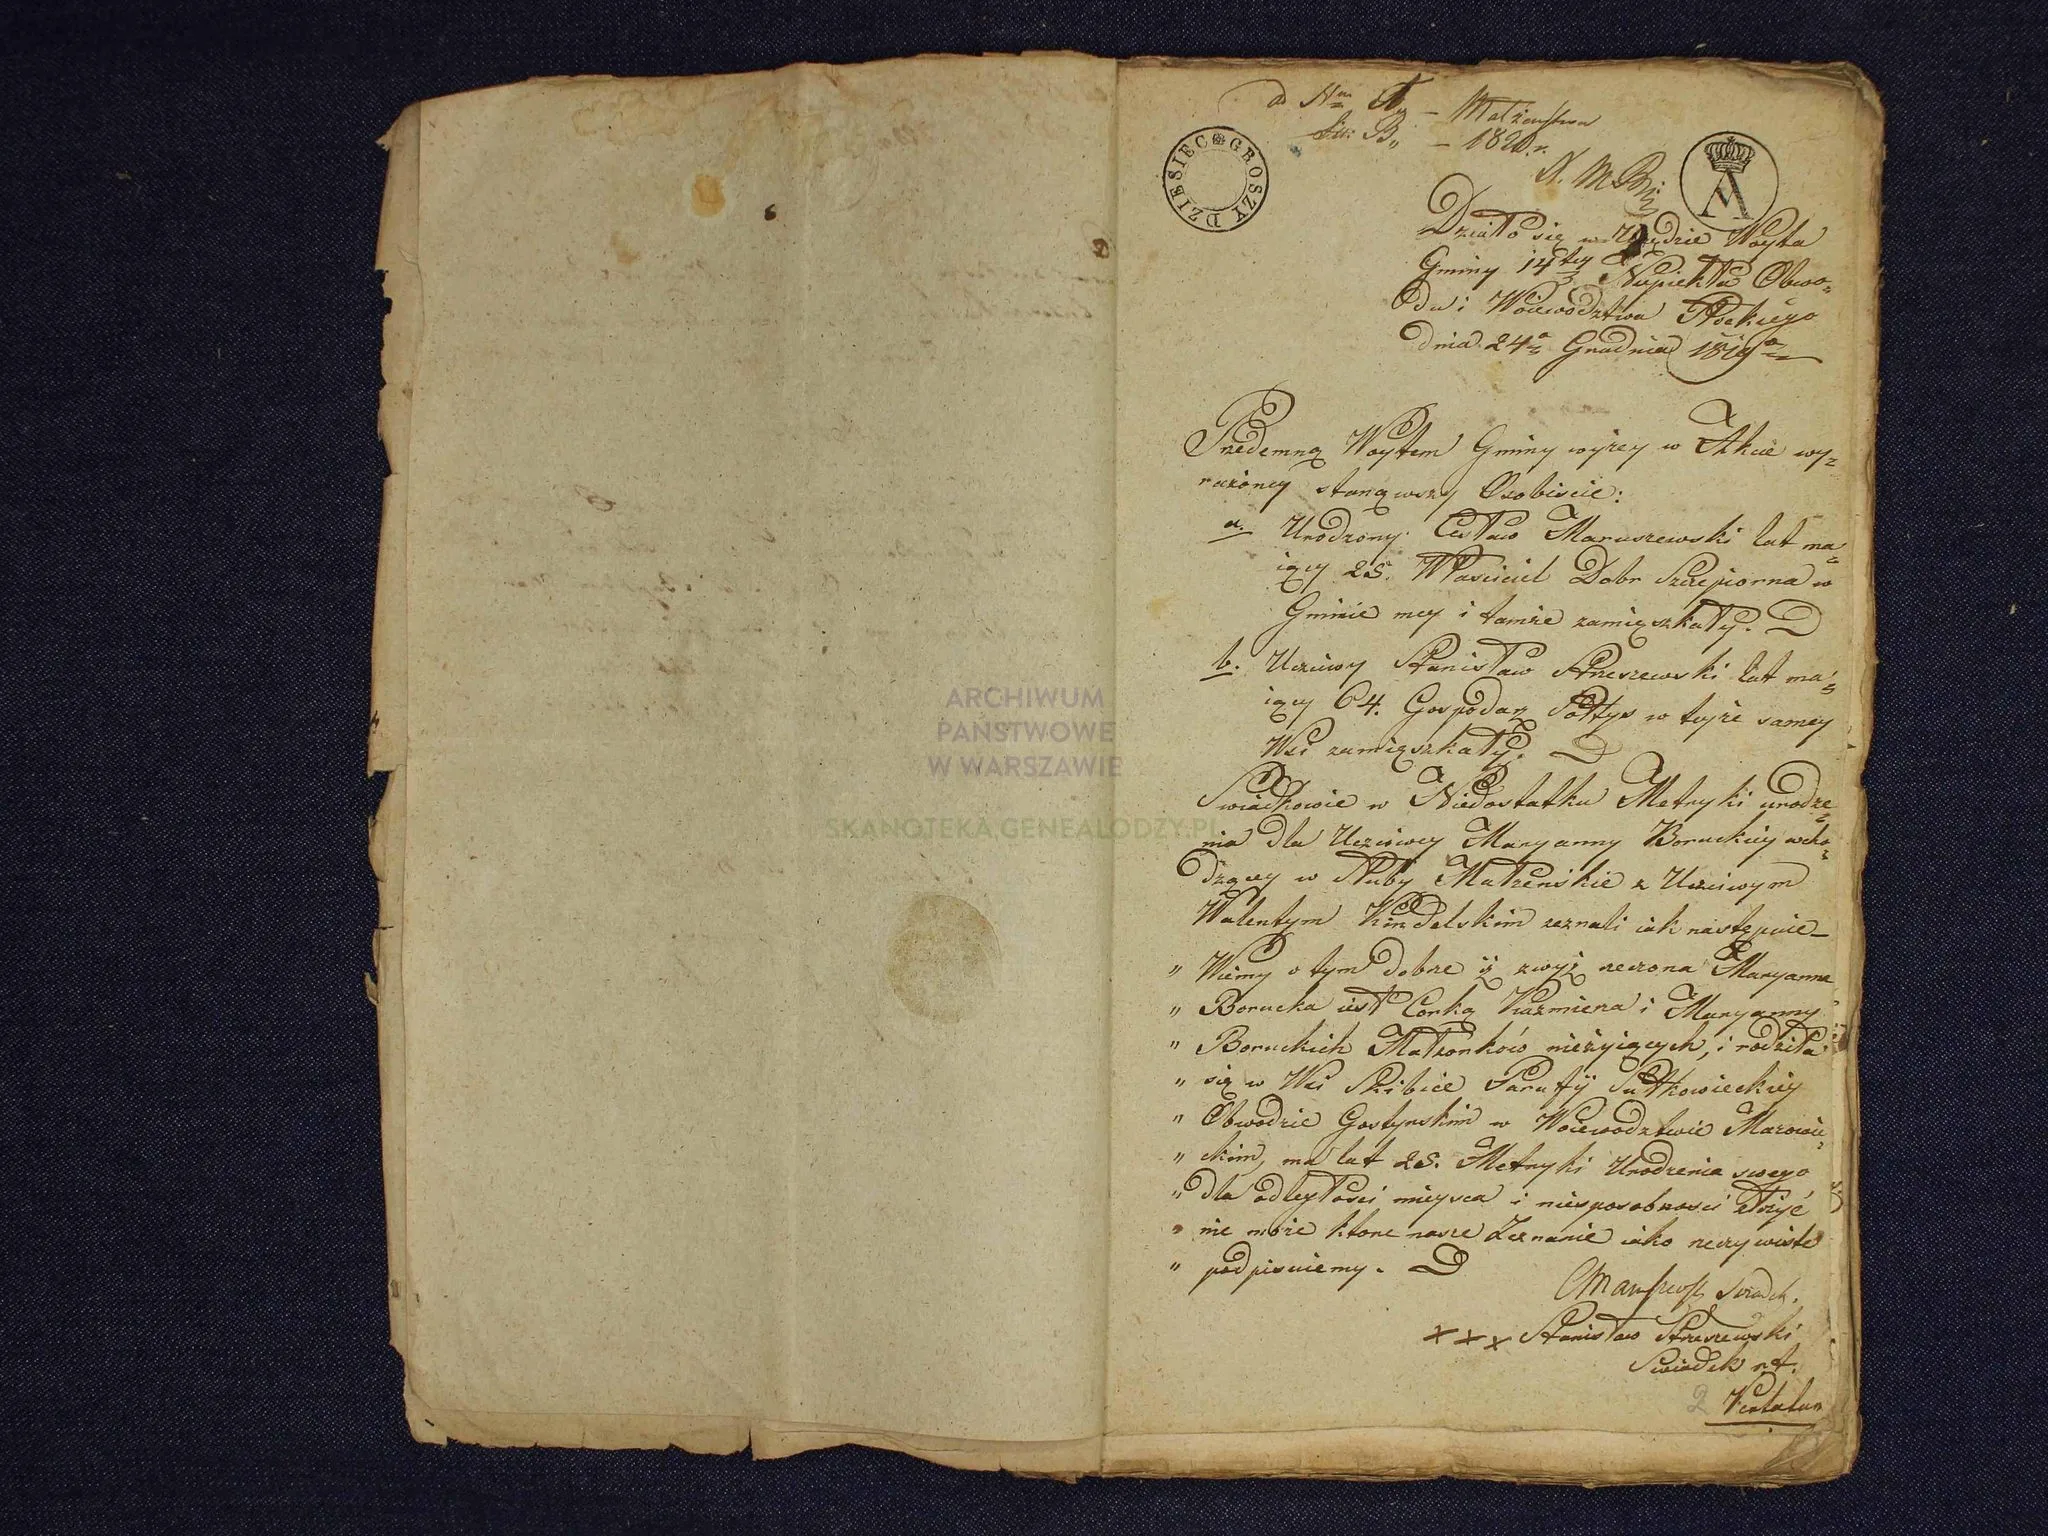 do Nru A,, – Małżeństwa
Lit: B,, – 1820. r.
DZIESIEC GROSZY
A
Działo się w Urzędzie Woyta
Gminy 14tey Obwo=
du i Woiewodztwa Płockiego
dnia 24o Grudnia 1819o
Przedemną Woytem Gminy wyżey w Akcie wy=
rażoney stanąwszy Osobiscie:
a. Urodzony Maruszewski lat ma=
iący 25. Właściciel Dobr Szczepiorna w
Gminie mey i tamże zamięszkały.
b. Uczciwy Stanisław Strzeszewski lat ma=
iący 64. Gospodarz Sołtys w teyże samey
Wsi zamięszkały.
Swiadkowie w Niedostatku Metryki urodze=
nia dla Uczciwey Maryanny Boruckiey wcho=
dzącey w Sluby Małżenskie z Uczciwym
Walentym Kindelskim zeznali iak następuie –
" Wiemy o tym dobrze iż zwyż rzeczona Maryanna
" Borucka iest Corką Kazmierza i Maryanny
" Boruckich Małżonków nieżyiących, i rodziła
" się w Wsi Skibice Parafij Sutkowieckiey
" Obwodzie Gostynskim w Woiewodztwie Mazowie=
" ckim, ma lat 25. Metryki Urodzenia swego
" dla odległości mieysca i niesposobnosci złożyć
" nie może ktore nasze Zeznanie iako rzeczywiste
" podpisuiemy.
Swiadek.
xxx Stanisław Strzeszewski
Swiadek
2
ARCHIWUM
PAŃSTWOWE
W WARSZAWIE
SKANOTEKA.GENEALODZY.PL